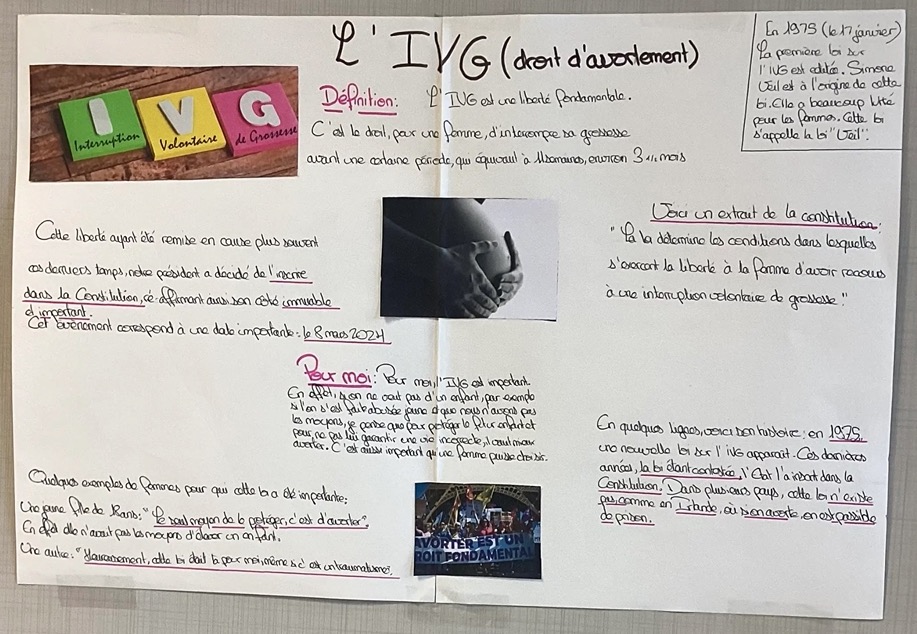 L'IVG (droit d'avortement)
I V G
Interruption Volontaire de Grossesse
Définition: L'IVG est une liberté fondamentale.
C'est le droit, pour une femme, d'interrompre sa grossesse
avant une certaine période, qui équivaut à semaines, environ 3 mois
En 1975 (le 17 janvier)
La première loi sur
l'IVG est éditée. Simone
Veil est à l'origine de cette
loi. Elle a beaucoup lutté
pour les femmes. Cette loi
s'appelle la loi "Veil".
Cette liberté ayant été remise en cause plus souvent
ces derniers temps, notre président a décidé de l'inscrire
dans la Constitution, ré-affirmant ainsi son côté immuable
et important.
Cet évènement correspond à une date importante: le 8 mars 2024
Voici un extrait de la constitution:
"La loi détermine les conditions dans lesquelles
s'exercent la liberté à la femme d'avoir recours
à une interruption volontaire de grossesse."
Pour moi: Pour moi, l'IVG est important.
En effet, si on ne veut pas d'un enfant, par exemple
si l'on s'est fait abusée jeune et que nous n'avons pas
les moyens, je pense que pour protéger le futur enfant et
pour ne pas lui garantir une vie incorrecte, il vaut mieux
avorter. C'est aussi important qu'une femme puisse choisir.
En quelques lignes, voici son histoire: en 1975,
une nouvelle loi sur l'IVG apparait. Ces dernières
années, la loi étant contestée, l'Etat l'a inscrit dans la
Constitution. Dans plusieurs pays, cette loi n'existe
pas, comme en Irlande, où si on avorte, on est passible
de prison.
Quelques exemples de femmes pour qui cette loi a été importante:
Une jeune fille de 16 ans: "Le seul moyen de le protéger, c'est d'avorter",
En effet elle n'avait pas les moyens d'élever un enfant.
Une autre: "Heureusement, cette loi était là pour moi, même si c'est un traumatisme".
AVORTER EST UN
DROIT FONDAMENTAL